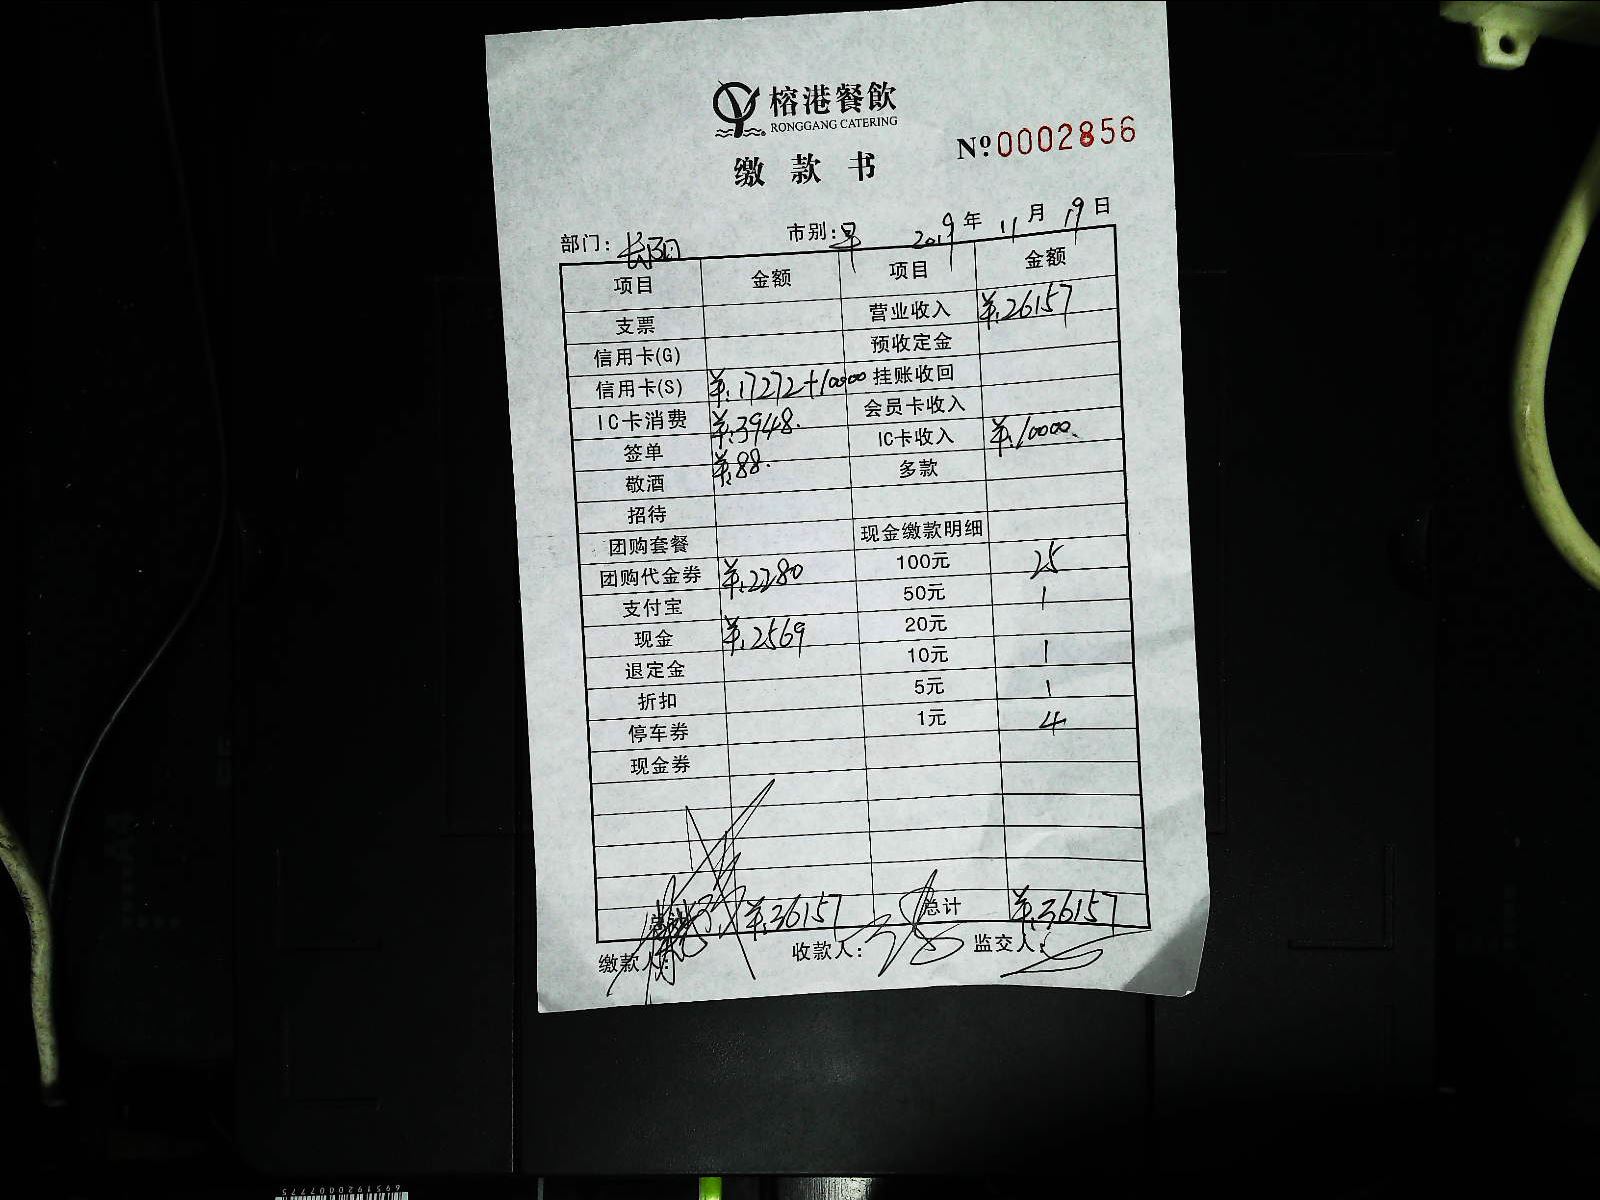 榕港餐飲
RONGGANG CATERING
缴款书
Nº0002856
部门：长阳 市别：早 2019年11月19日
项目 金额 项目 金额
支票 营业收入 ¥.26157
信用卡(G) 预收定金
信用卡(S) ¥.17272+10000 挂账收回
IC卡消费 ¥.3948. 会员卡收入
签单 ¥.88. IC卡收入 ¥.10000.
敬酒 多款
招待
团购套餐 现金缴款明细
团购代金券 ¥.2280 100元 25
支付宝 50元 1
现金 ¥.2569 20元
退定金 10元 1
折扣 5元 1
停车券 1元 4
现金券
¥.36157 总计 ¥.36157
缴款人： 收款人： 监交人：
6951920007775